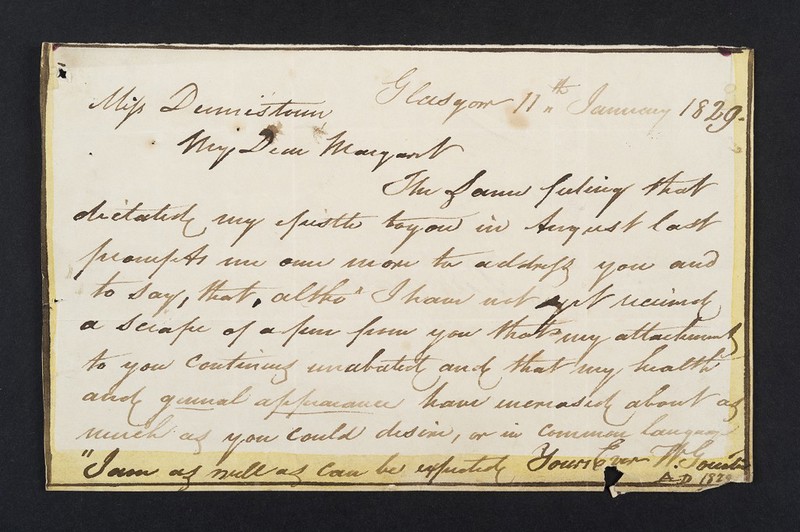 Glasgow 11th January 1829.
Miss Dennistoun
My Dear Margaret
The same feeling that
dictated my epistle to you in August last
prompts me once more to address you and
to say, that, altho" I have not yet received
a scrape of a pen from you that my attachment
to you continues unabated and that my health
and general appearance have increased about as
much as you could desire, or in common language
"I am as well as can be expected Yours Ever W.
AD 1829